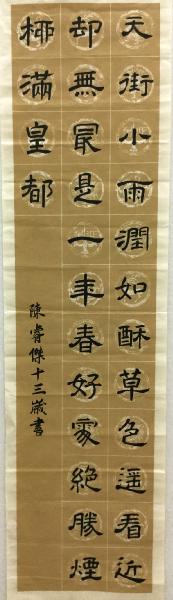 天街小雨潤如酥草色遙看近
却無最是一年春好處絕勝煙
柳滿皇都
陳睿傑十三歲書